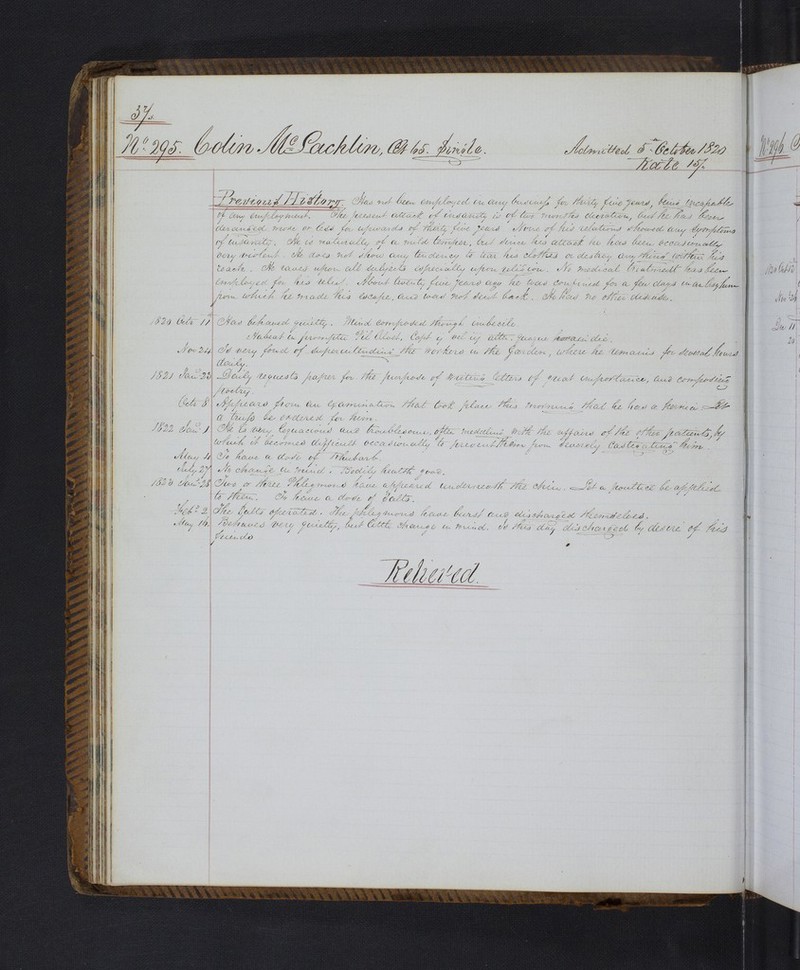 37.
No. 295. Colin McLachlin, Æt 65. Single. Admitted 5th October 1820
Rate 15/.
Previous History. Has not been employed in any business for thirty five years, being incapable
of any employment. The present attack of insanity is of two months duration, but he has been
deranged more or less for upwards of thirty five years. None of his relations showed any symptoms
of insanity. He is naturally of a mild temper, but since his attack he has been occasionally
very violent. He does not show any tendency to tear his clothes or destroy any thing within his
reach. He raves upon all subjects especially upon religion. No medical treatment has been
employed for his relief. About twenty five years ago he was confined for a few days in an Asylum
from which he made his escape, and was not sent back. He has no other disease.
1820 Octr 11 Has behaved quietly. Mind composed though imbecile.
Habeat in promptu Pil.
Nov 24 Is very fond of superintending the workers in the Garden, where he remains for several hours
daily.
1821 Jany 22 Daily requests paper for the purpose of writing letters of great importance, and composing
poetry.
Octr 8 Appears from an examination that took place this morning that he has a hernia. Let
a truss be ordered for him.
1822 Jany 1 He is very loquacious and troublesome, often meddling with the affairs of the other patients, by
which it becomes difficult occasionally to prevent them from severely castigating him.
May 4 To have a dose of Rhubarb.
July 27 No change in mind. Bodily health good.
1823 Jany 28 Two or three Phlegmons have appeared underneath the chin. Let a poultice be applied
to them. To have a dose of Salts.
Feby 2 The Salts operated. The phlegmons have burst and discharged themselves.
May 16 Behaves very quietly, but little change in mind. Is this day discharged by desire of his
friends
Relieved.